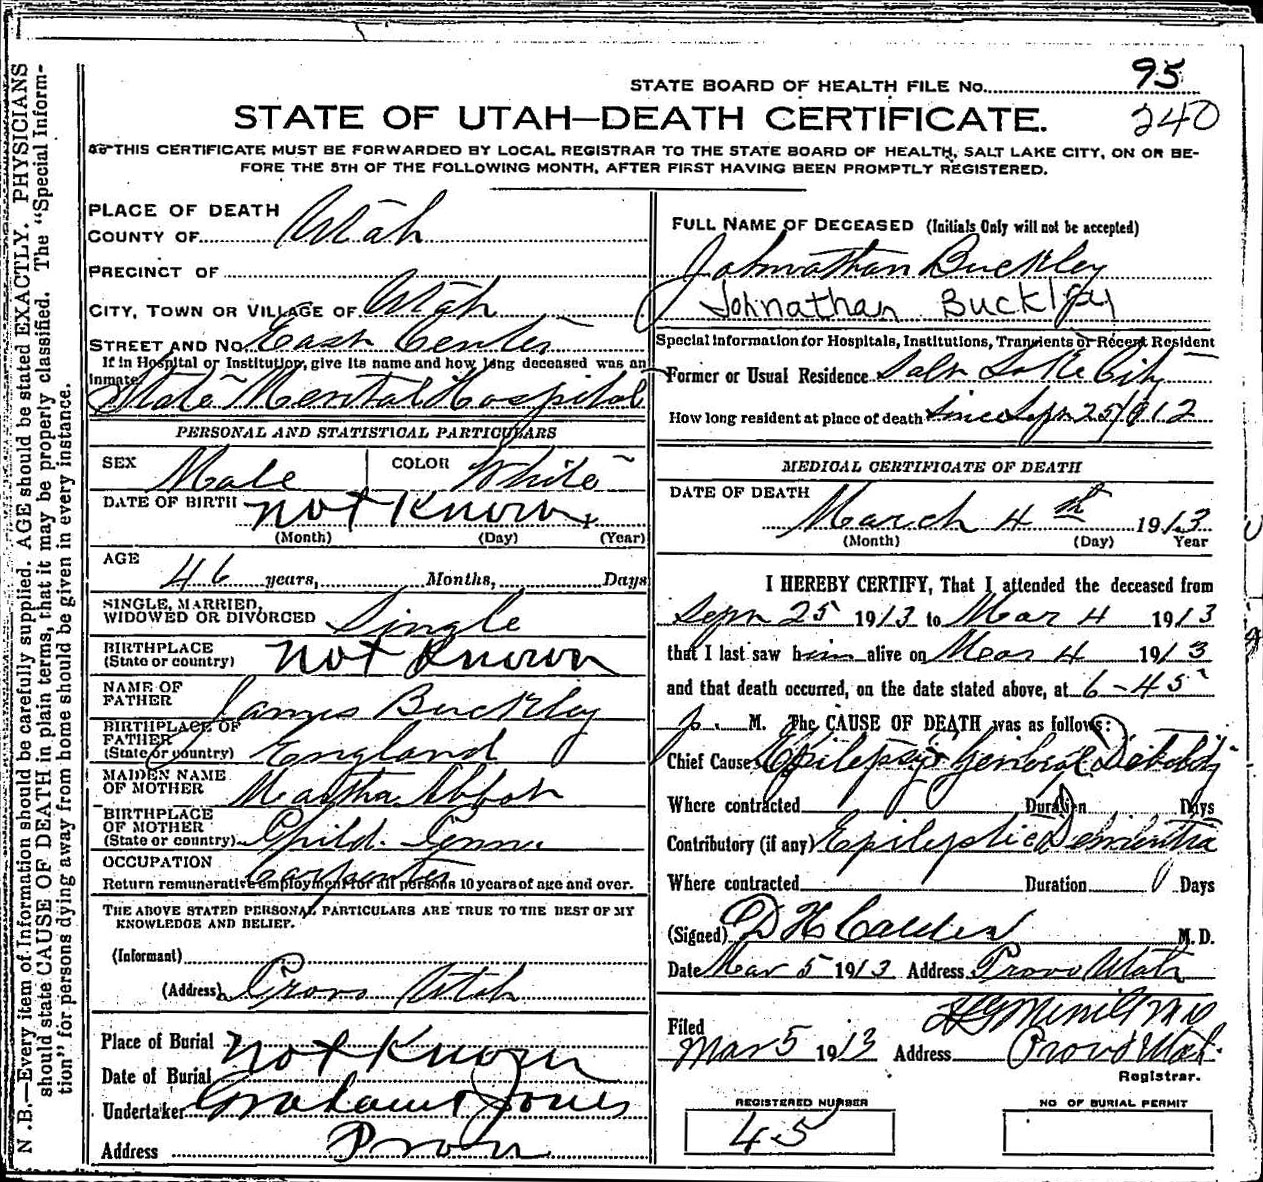 STATE BOARD OF HEALTH FILE No. 95
240
STATE OF UTAH—DEATH CERTIFICATE.
THIS CERTIFICATE MUST BE FORWARDED BY LOCAL REGISTRAR TO THE STATE BOARD OF HEALTH, SALT LAKE CITY, ON OR BE-
FORE THE 5TH OF THE FOLLOWING MONTH, AFTER FIRST HAVING BEEN PROMPTLY REGISTERED.
N.B.—Every item of Information should be carefully supplied. AGE should be stated EXACTLY. PHYSICIANS
should state CAUSE OF DEATH in plain terms, that it may be properly classified. The "Special Inform-
tion" for persons dying away from home should be given in every instance.
PLACE OF DEATH
COUNTY OF Utah
PRECINCT OF
CITY, TOWN OR VILLAGE OF Utah
STREET AND No. East Center
If in Hospital or Institution, give its name and how long deceased was an
inmate.
State Mental Hospital
PERSONAL AND STATISTICAL PARTICULARS
SEX Male COLOR White
DATE OF BIRTH not Known
(Month) (Day) (Year)
AGE
46 years, Months, Days
SINGLE, MARRIED,
WIDOWED OR DIVORCED Single
BIRTHPLACE
(State or country) not Known
NAME OF
FATHER James Buckley
BIRTHPLACE OF
FATHER
(State or country) England
MAIDEN NAME
OF MOTHER Martha Abbott
BIRTHPLACE
OF MOTHER
(State or country) Phild. Penn.
OCCUPATION Carpenter
Return remunerative employment for all persons 10 years of age and over.
THE ABOVE STATED PERSONAL PARTICULARS ARE TRUE TO THE BEST OF MY
KNOWLEDGE AND BELIEF.
(Informant)
(Address) Provo Utah
Place of Burial not Known
Date of Burial
Undertaker Graham & Jones
Address Provo
FULL NAME OF DECEASED (Initials Only will not be accepted)
Johnathan Buckley
Johnathan Buckley
Special Information for Hospitals, Institutions, Transients or Recent Resident
Former or Usual Residence Salt Lake City
How long resident at place of death Since Sept 25/1912
MEDICAL CERTIFICATE OF DEATH
DATE OF DEATH
March 4th 1913
(Month) (Day) Year
I HEREBY CERTIFY, That I attended the deceased from
Sept 25 1913 to Mar 4 1913
that I last saw him alive on Mar 4 1913
and that death occurred, on the date stated above, at 6-45
M. The CAUSE OF DEATH was as follows:
Chief Cause Epilepsy & General Debility
Where contracted Duration Days
Contributory (if any) Epileptic Dementia
Where contracted Duration Days
(Signed) D H Calder M.D.
Date Mar 5 1913 Address Provo Utah
Filed
Mar 5 1913 Address Provo Utah.
Registrar.
REGISTERED NUMBER
45
NO OF BURIAL PERMIT